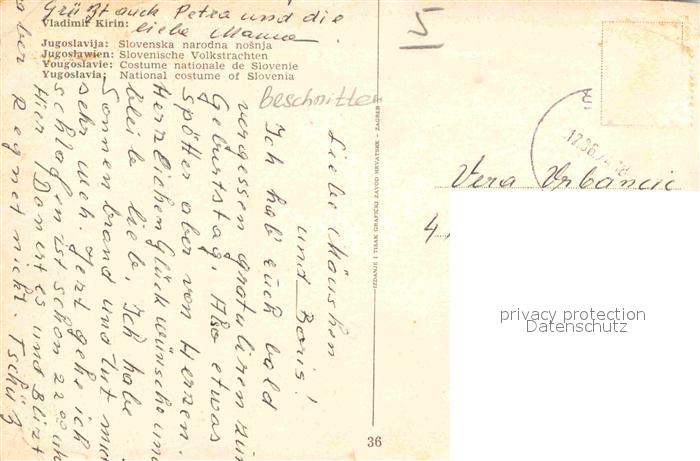 Grüzt auch Petra und die
liebe Manna.
Vladimir Kirin:
Jugoslavija: Slovenska narodna nošnja
Jugoslawien: Slovenische Volkstrachten
Yougoslavie: Costume nationale de Slovenie
Yugoslavia: National costume of Slovenia
Beschnitten
Liebe Mäuschen
und Boris!
Ich hab' euch bald
vergessen gratuliren zum
Geburtstag. Also etwas
spätter aber von Herzen.
Herzlichen Glückwünsche und
bleib lieb. Ich habe
Sonnenbrand und tut mich
sehr weh. Jetzt gehe ich
schlafen ist schon 22 00 uh
Hier Donert es und Blizt
aber Regnet nicht. Tschüß
IZDANJE I TISAK GRAFIČKI ZAVOD HRVATSKE - ZAGREB
36
5
12.06.
Vera Vrbancic
4
privacy protection
Datenschutz